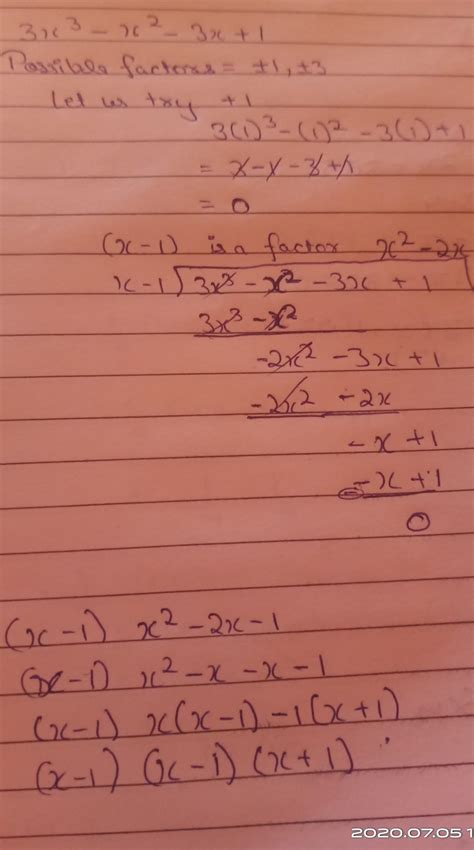 3x³ - x² - 3x + 1
Possible factors = ±1, ±3
Let us try +1
3(1)³ - (1)² - 3(1) + 1
= 3 - 1 - 3 + 1
= 0
(x-1) is a factor
x² - 2x
x-1) 3x³ - x² - 3x + 1
3x³ - x²
-2x² - 3x + 1
-2x² - 2x
- x + 1
- x + 1
0
(x-1) x² - 2x - 1
(x-1) x² - x - x - 1
(x-1) x(x-1) -1(x+1)
(x-1) (x-1) (x+1)
2020.07.05 1